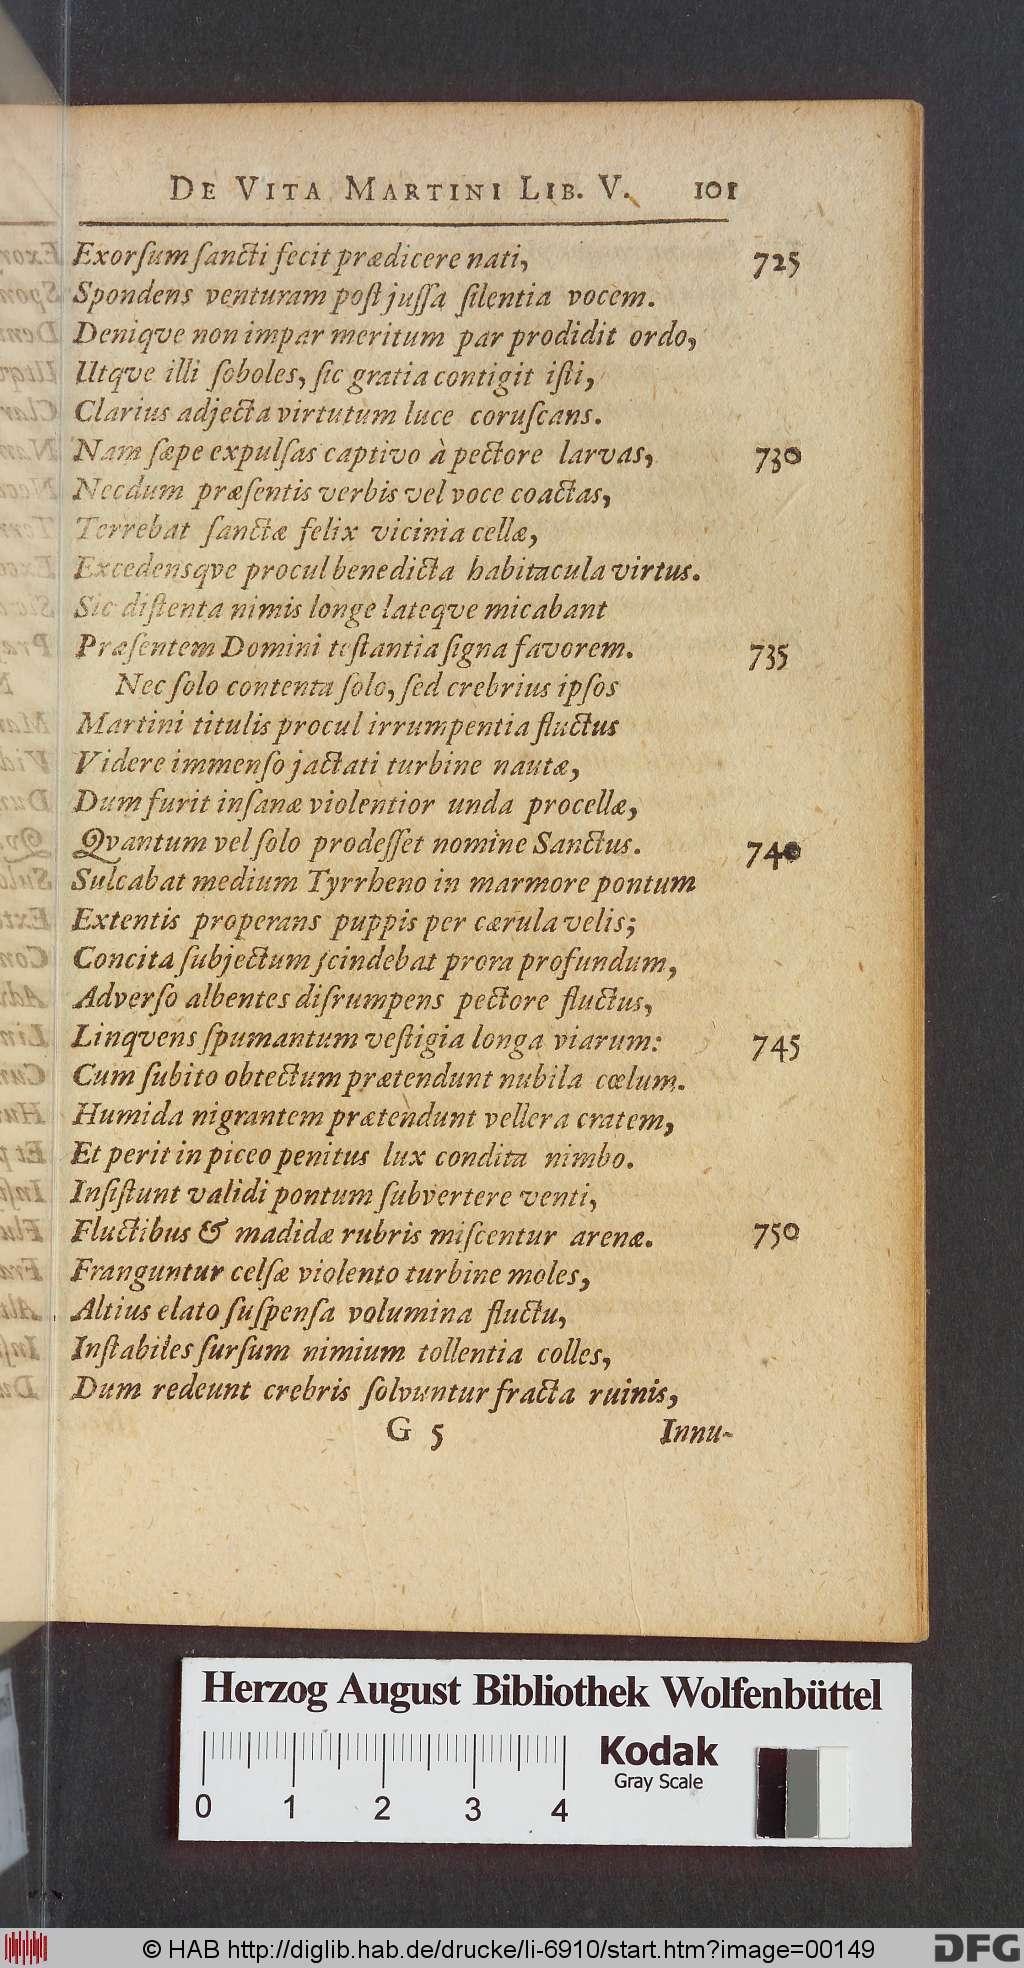 DE VITA MARTINI LIB. V. 101
Exorſum ſancti fecit prædicere nati, 725
Spondens venturam poſt juſſa ſilentia vocem.
Deniqve non impar meritum par prodidit ordo,
Utqve illi ſoboles, ſic gratia contigit iſti,
Clarius adjecta virtutum luce coruſcans.
Nam ſæpe expulſas captivo à pectore larvas, 730
Necdum præſentis verbis vel voce coactas,
Terrebat ſanctæ felix vicinia cellæ,
Excedensqve procul benedicta habitacula virtus.
Sic diſtenta nimis longe lateqve micabant
Præſentem Domini teſtantia ſigna favorem. 735
Nec ſolo contenta ſolo, ſed crebrius ipſos
Martini titulis procul irrumpentia fluctus
Videre immenſo jactati turbine nautæ,
Dum furit inſanæ violentior unda procellæ,
Qvantum vel ſolo prodeſſet nomine Sanctus. 740
Sulcabat medium Tyrrheno in marmore pontum
Extentis properans puppis per cærula velis;
Concita ſubjectum ſcindebat prora profundum,
Adverſo albentes diſrumpens pectore fluctus,
Linqvens ſpumantum veſtigia longa viarum: 745
Cum ſubito obtectum prætendunt nubila cœlum.
Humida nigrantem prætendunt vellera cratem,
Et perit in piceo penitus lux condita nimbo.
Inſiſtunt validi pontum ſubvertere venti,
Fluctibus & madidæ rubris miſcentur arenæ. 750
Franguntur celſæ violento turbine moles,
Altius elato ſuſpenſa volumina fluctu,
Inſtabiles ſurſum nimium tollentia colles,
Dum redeunt crebris ſolvuntur fracta ruinis,
G 5 Innu-
Herzog August Bibliothek Wolfenbüttel
Kodak
Gray Scale
0 1 2 3 4
© HAB http://diglib.hab.de/drucke/li-6910/start.htm?image=00149
DFG